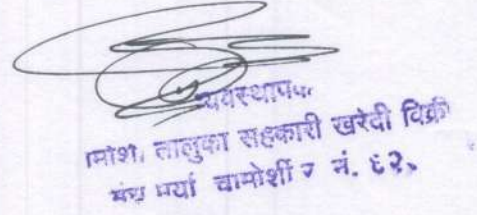 व्यवस्थापक
मोशी, तालुका सहकारी खरेदी विक्री
संघ मर्या चामोर्शी र नं. ६२,